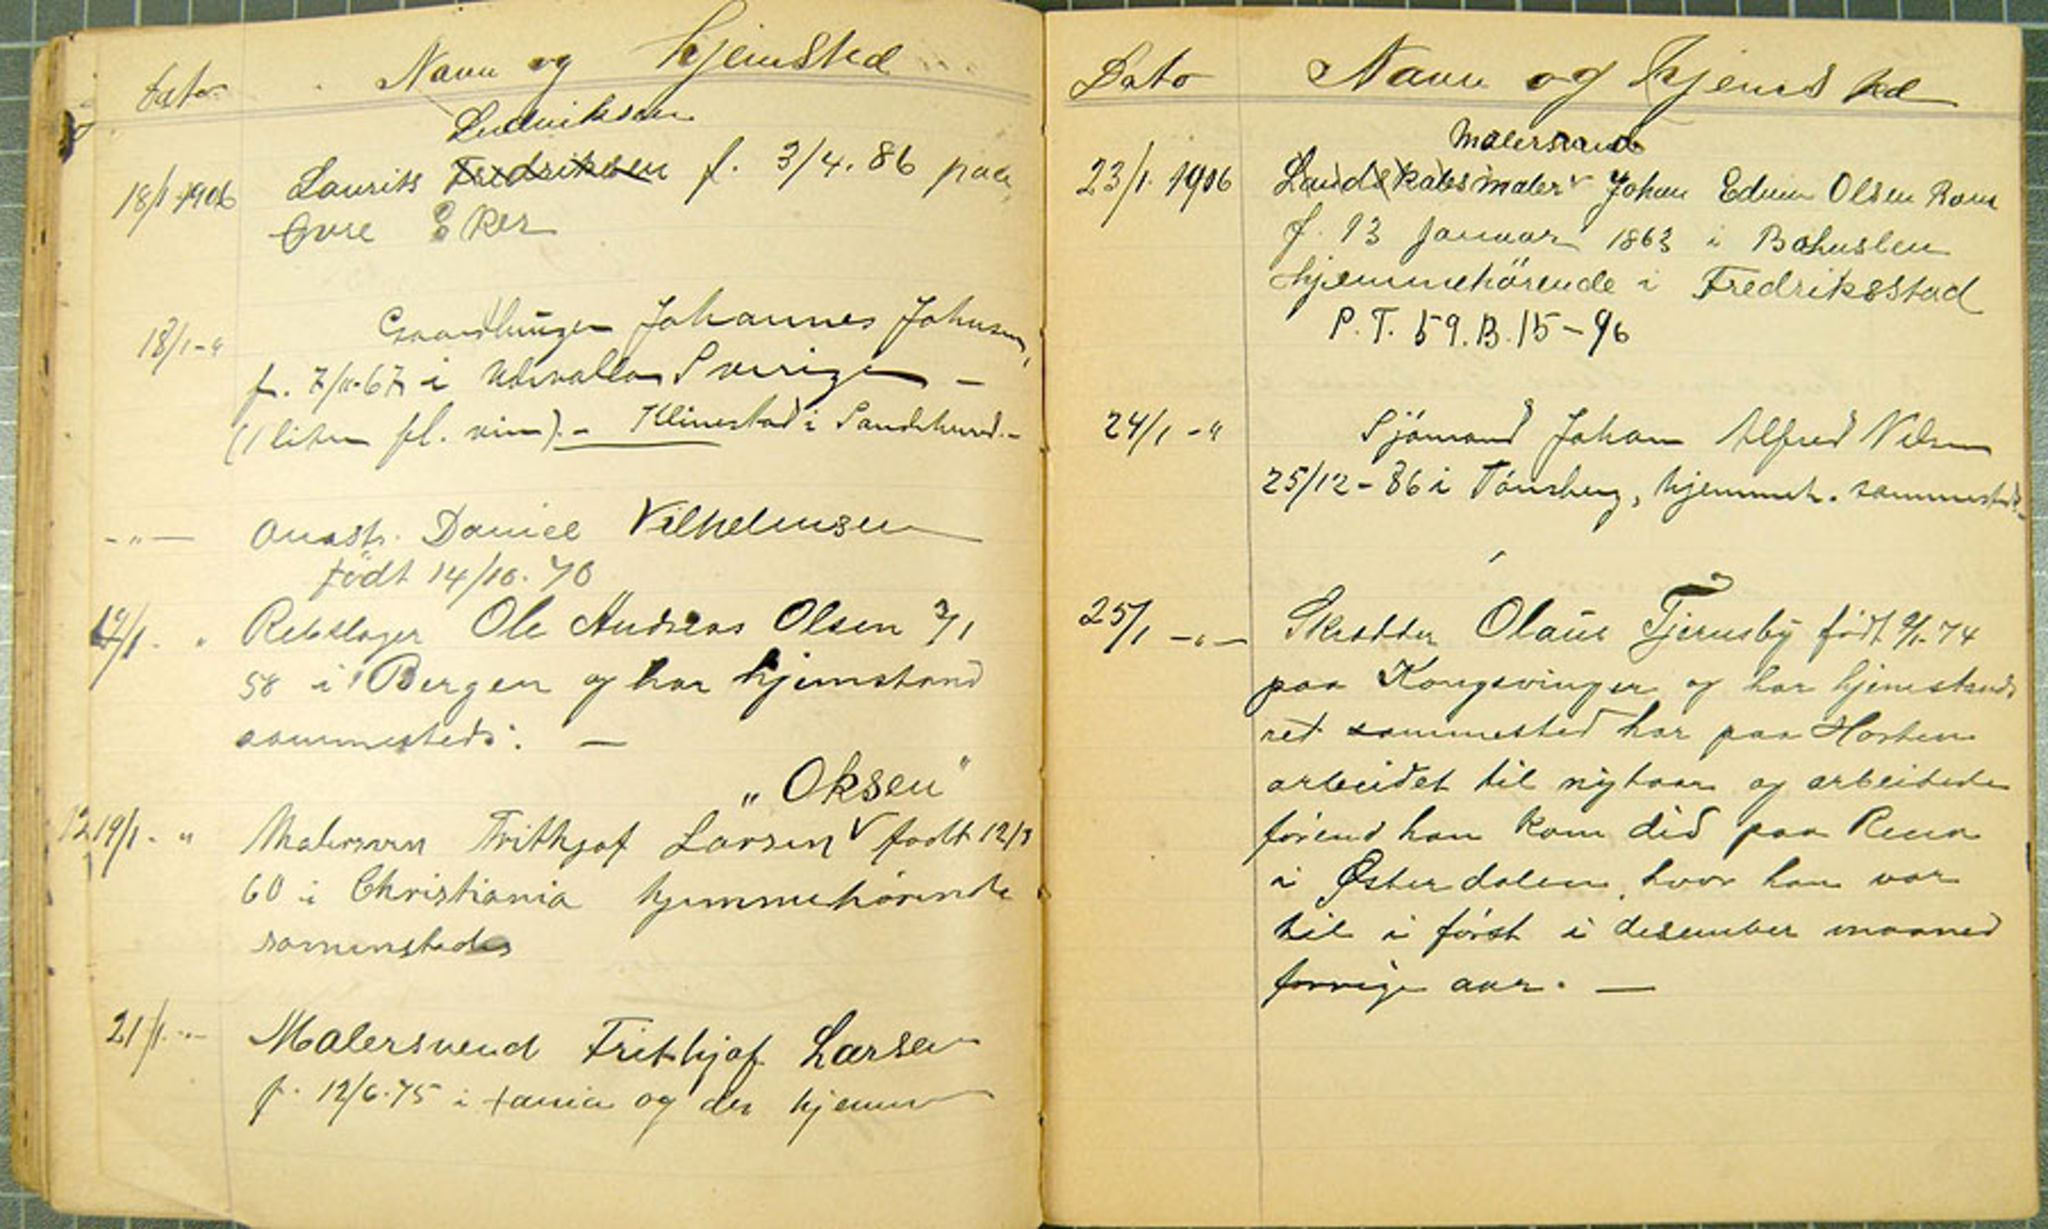 Dato Navn og hjemsted
Ludviksen
18/1 1906 Laurits Fredriksen f. 3/4. 86 paa
Øvre Eker
18/1 - " Johannes Johnsen,
f. 7/11-67 i Udevalla Sverige –
(1 liter fl. vin). – Klinestad i Sandeherred. –
- " - Daniel Vilhelmsen
født 14/10. 70
19/1 . " Rebslager Ole Andreas Olsen 3/1
58 i Bergen og har hjemstavn
sammesteds. —
„Oksen"
12 19/1 . " Malersven Frithjof Larsen født 12/3
60 i Christiania hjemmehørende
sammesteds
21/1. " Malersvend Frithjof Larsen
f. 12/6. 75 i +ania og der hjemm
Dato Navn og hjemsted
Malersvend
23/1. 1906 Landskabsmaler Johan Edvin Olsen
f. 13 Januar 1863 i Bohuslen
hjemmehörende i Fredriksstad
P. T. 59. B. 15 – 96
24/1 - " Sjömand Johan Alfred Nilsen
25/12 – 86 i Tönsberg, hjemmeh. sammesteds. –
25/1 - " - Skrædder Olaus Tjernsby født 9/1. 74
paa Kongsvinger og har hjemstavns
ret sammested har paa Horten
arbeidet til nytaar og arbeidede
förend han kom did paa Rena
i Østerdalen, hvor han var
til i først i desember maaned
forrige aar. —